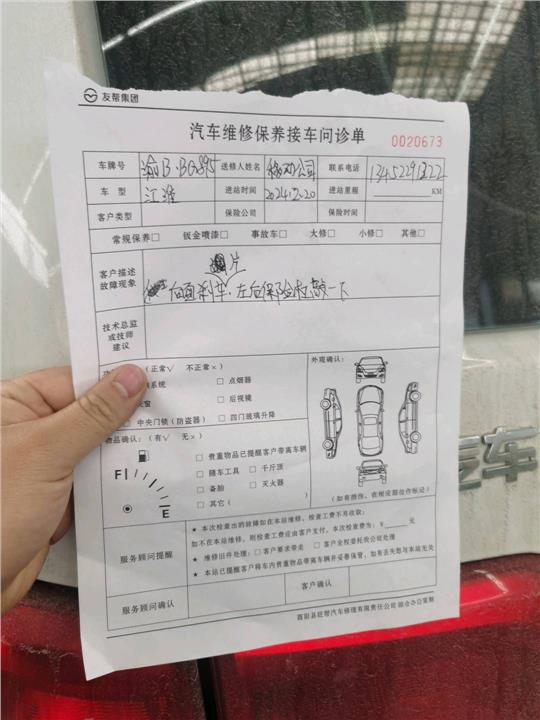 友帮集团
汽车维修保养接车问诊单
0020673
车牌号 渝B·BG895 送修人姓名 移动公司 联系电话
车型 江淮 进站时间 2024.2.20 进站里程 KM
客户类型 保险公司 保险时间
常规保养□ 钣金喷漆□ 事故车□ 大修□ 小修□ 其他□
客户描述
故障现象
片
后面刹车·左后保险杠敲一下
技术总监
或技师
建议
(正常√ 不正常×)
系统 □ 点烟器
窗 □ 后视镜
中央门锁(防盗器) □ 四门玻璃升降
外观确认:
物品确认:(有√ 无×)
□ 贵重物品已提醒客户带离车辆
□ 随车工具 □ 千斤顶
□ 备胎 □ 灭火器
□ 其它(
F
E
(如有损伤,在相应部位作标记)
服务顾问提醒
★ 本次检查出的故障如在本站维修,检查工费不另收取;
如不在本站维修,则检查工费应由客户支付,本次检查费为:¥ 元
★ 维修旧件处理:□客户要求带走 □客户全权委托我公司处理
★ 本站已提醒客户将车内贵重物品带离车辆并妥善保管,如有丢失恕与本站无关
服务顾问确认 客户确认
酉阳县旺帮汽车修缮有限责任公司 综合办公室制
汽车